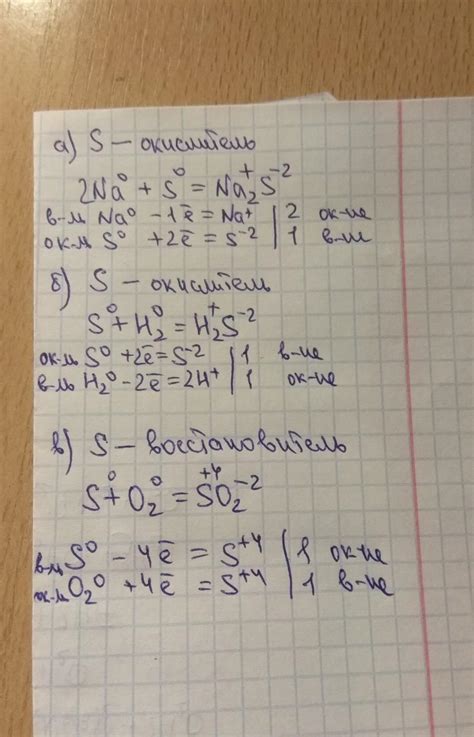 а) S – окислитель
2Na⁰ + S⁰ = Na₂⁺S⁻²
в-ль Na⁰ – 1ē = Na⁺ | 2 ок-ие
ок-ль S⁰ + 2ē = S⁻² | 1 в-ие
б) S – окислитель
S⁰ + H₂⁰ = H₂⁺S⁻²
ок-ль S⁰ + 2ē = S⁻² | 1 в-ие
в-ль H₂⁰ – 2ē = 2H⁺ | 1 ок-ие
в) S – восстановитель
S⁰ + O₂⁰ = S⁺⁴O₂⁻²
в-ль S⁰ – 4ē = S⁺⁴ | 1 ок-ие
ок-ль O₂⁰ + 4ē = S⁺⁴ | 1 в-ие